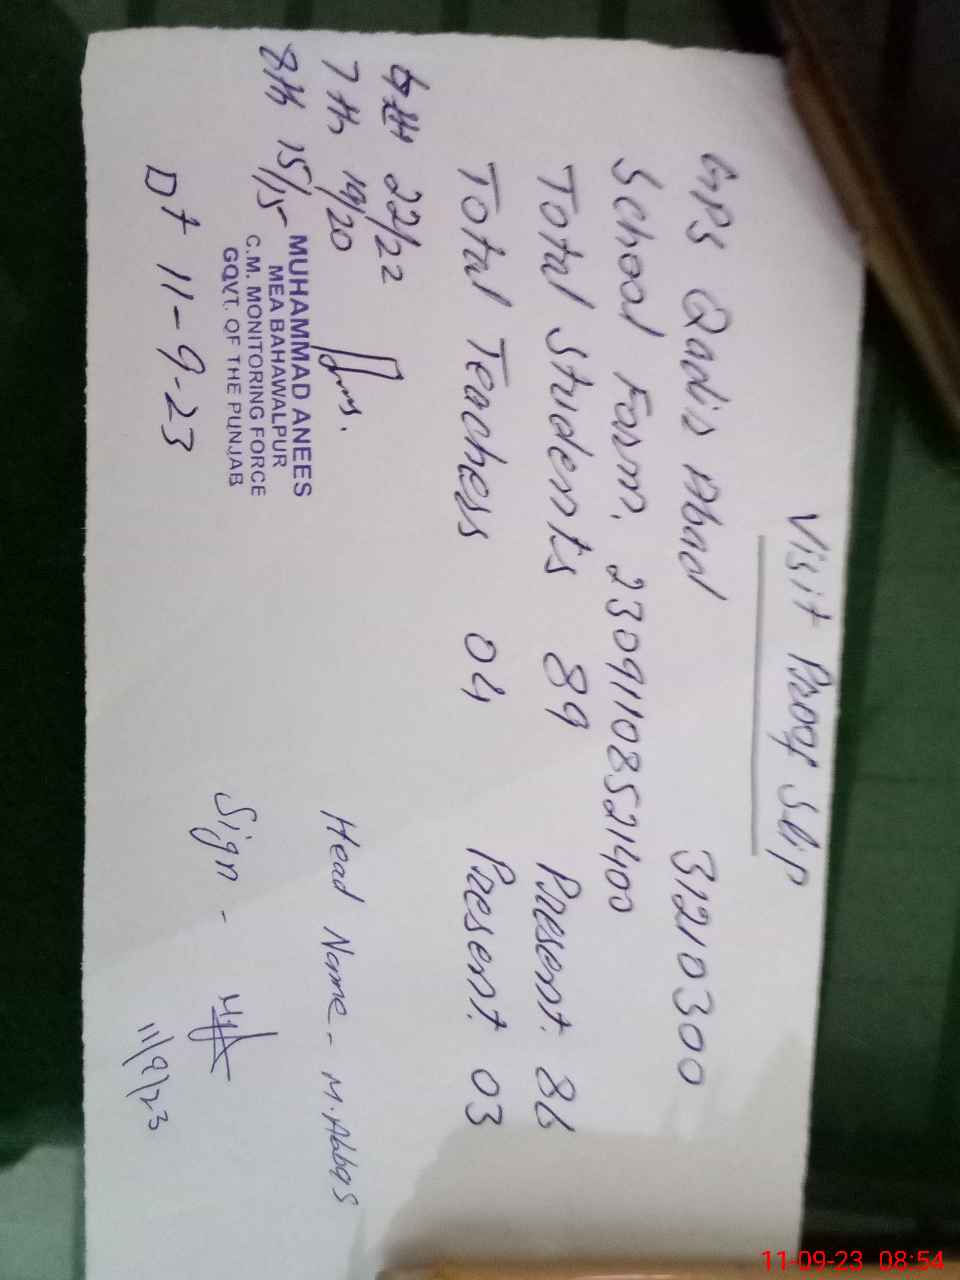 Visit Proof Slip
GPS Qadir Abad 31210300
School Form. 23091108521400
Total Students 89 Present. 86
Total Teachers 04 Present. 03
6th 22/22
7th 19/20
8th 15/15
Head Name - M. Abbas
MUHAMMAD ANEES
MEA BAHAWALPUR
C.M. MONITORING FORCE
GOVT. OF THE PUNJAB
Sign -
Dt 11-9-23
11/9/23
11-09-23 08:54